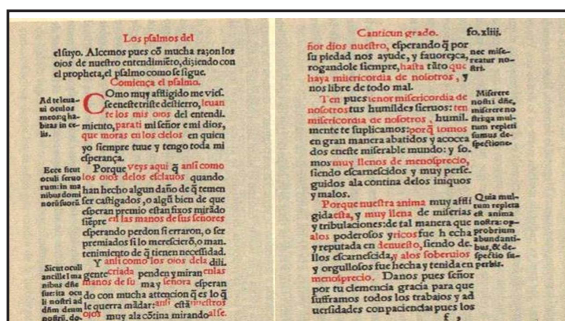 Los psalmos del
el suyo. Alcemos pues cō mucha razon los
ojos de nuestro entendimiēto, diziendo con
el propheta, el psalmo como se sigue.
Comiença el psalmo.
Ad te leuaui
oculos
meos q ha-
bitas in ce-
lis.
Como muy affligido me viesse
en este triste destierro, leuan
te los mis ojos del entendi-
miento, para ti mi señor e mi dios,
que moras en los cielos en quien
yo siempre tuue y tengo toda mi
esperança.
Ecce sicut
oculi seruo
rum: in ma
nibus domi
norū suorū
Porque veys aqui q̄ ansi como
los ojos de los esclauos quando
han hecho algun daño de q̄ temen
ser castigados, o algū bien de que
esperan premio estan fixos mirādo
siēpre en las manos de sus señores
esperando perdon si erraron, o ser
premiados si lo merescierō, o man-
tenimiento de q̄ tienen necesidad.
Sicut oculi
ancille in ma
nibus dñe
sue: ita ocu
li nostri ad
dñm deum
nostrū, do-
Y ansi como los ojos dela dili-
gente criada penden y miran en las
manos de su ma y señora esperan
do con mucha attencion q̄ es lo q̄
le querra mādar: ansi estā nuestros
ojos muy ala cōtina mirando al se-
Canticun grado. fo. xliij.
ñor dios nuestro, esperando q̄ por
su piedad nos ayude, y fauorezca,
rogandole siempre, hasta tāto que
haya misericordia de nosotros, y
nos libre de todo mal.
nec mise-
reatur no-
stri.
Ten pues señor misericordia de
nosotros tus humildes sieruos: ten
misericordia de nosotros, humil-
mente te suplicamos: porq̄ somos
en gran manera abatidos y acocea
dos en este miserable mundo: y so-
mos muy llenos de menosprecio,
siendo escarnescidos y muy perse-
guidos ala contina delos iniquos
y malos.
Miserere
nostri dñe,
miserere no
stri: quia mul
tum repleti
sumus de-
spectione.
Porque nuestra anima muy affli
gida esta, y muy llena de miserias
y tribulaciones: de tal manera que
alos poderosos y ricos fue hecha
y reputada en denuesto, siendo de-
llos escarnescida, y alos soberuios
y orgullosos fue hecha y tenida en
menosprecio. Danos pues señor
por tu clemencia gracia para que
suframos todos los trabajos y ad
uersidades con paciencia: pues los
Quia mul-
tum repleta
est anima
nostra: op-
probrium
abundanti-
bus, & de-
spectio su-
perbis.